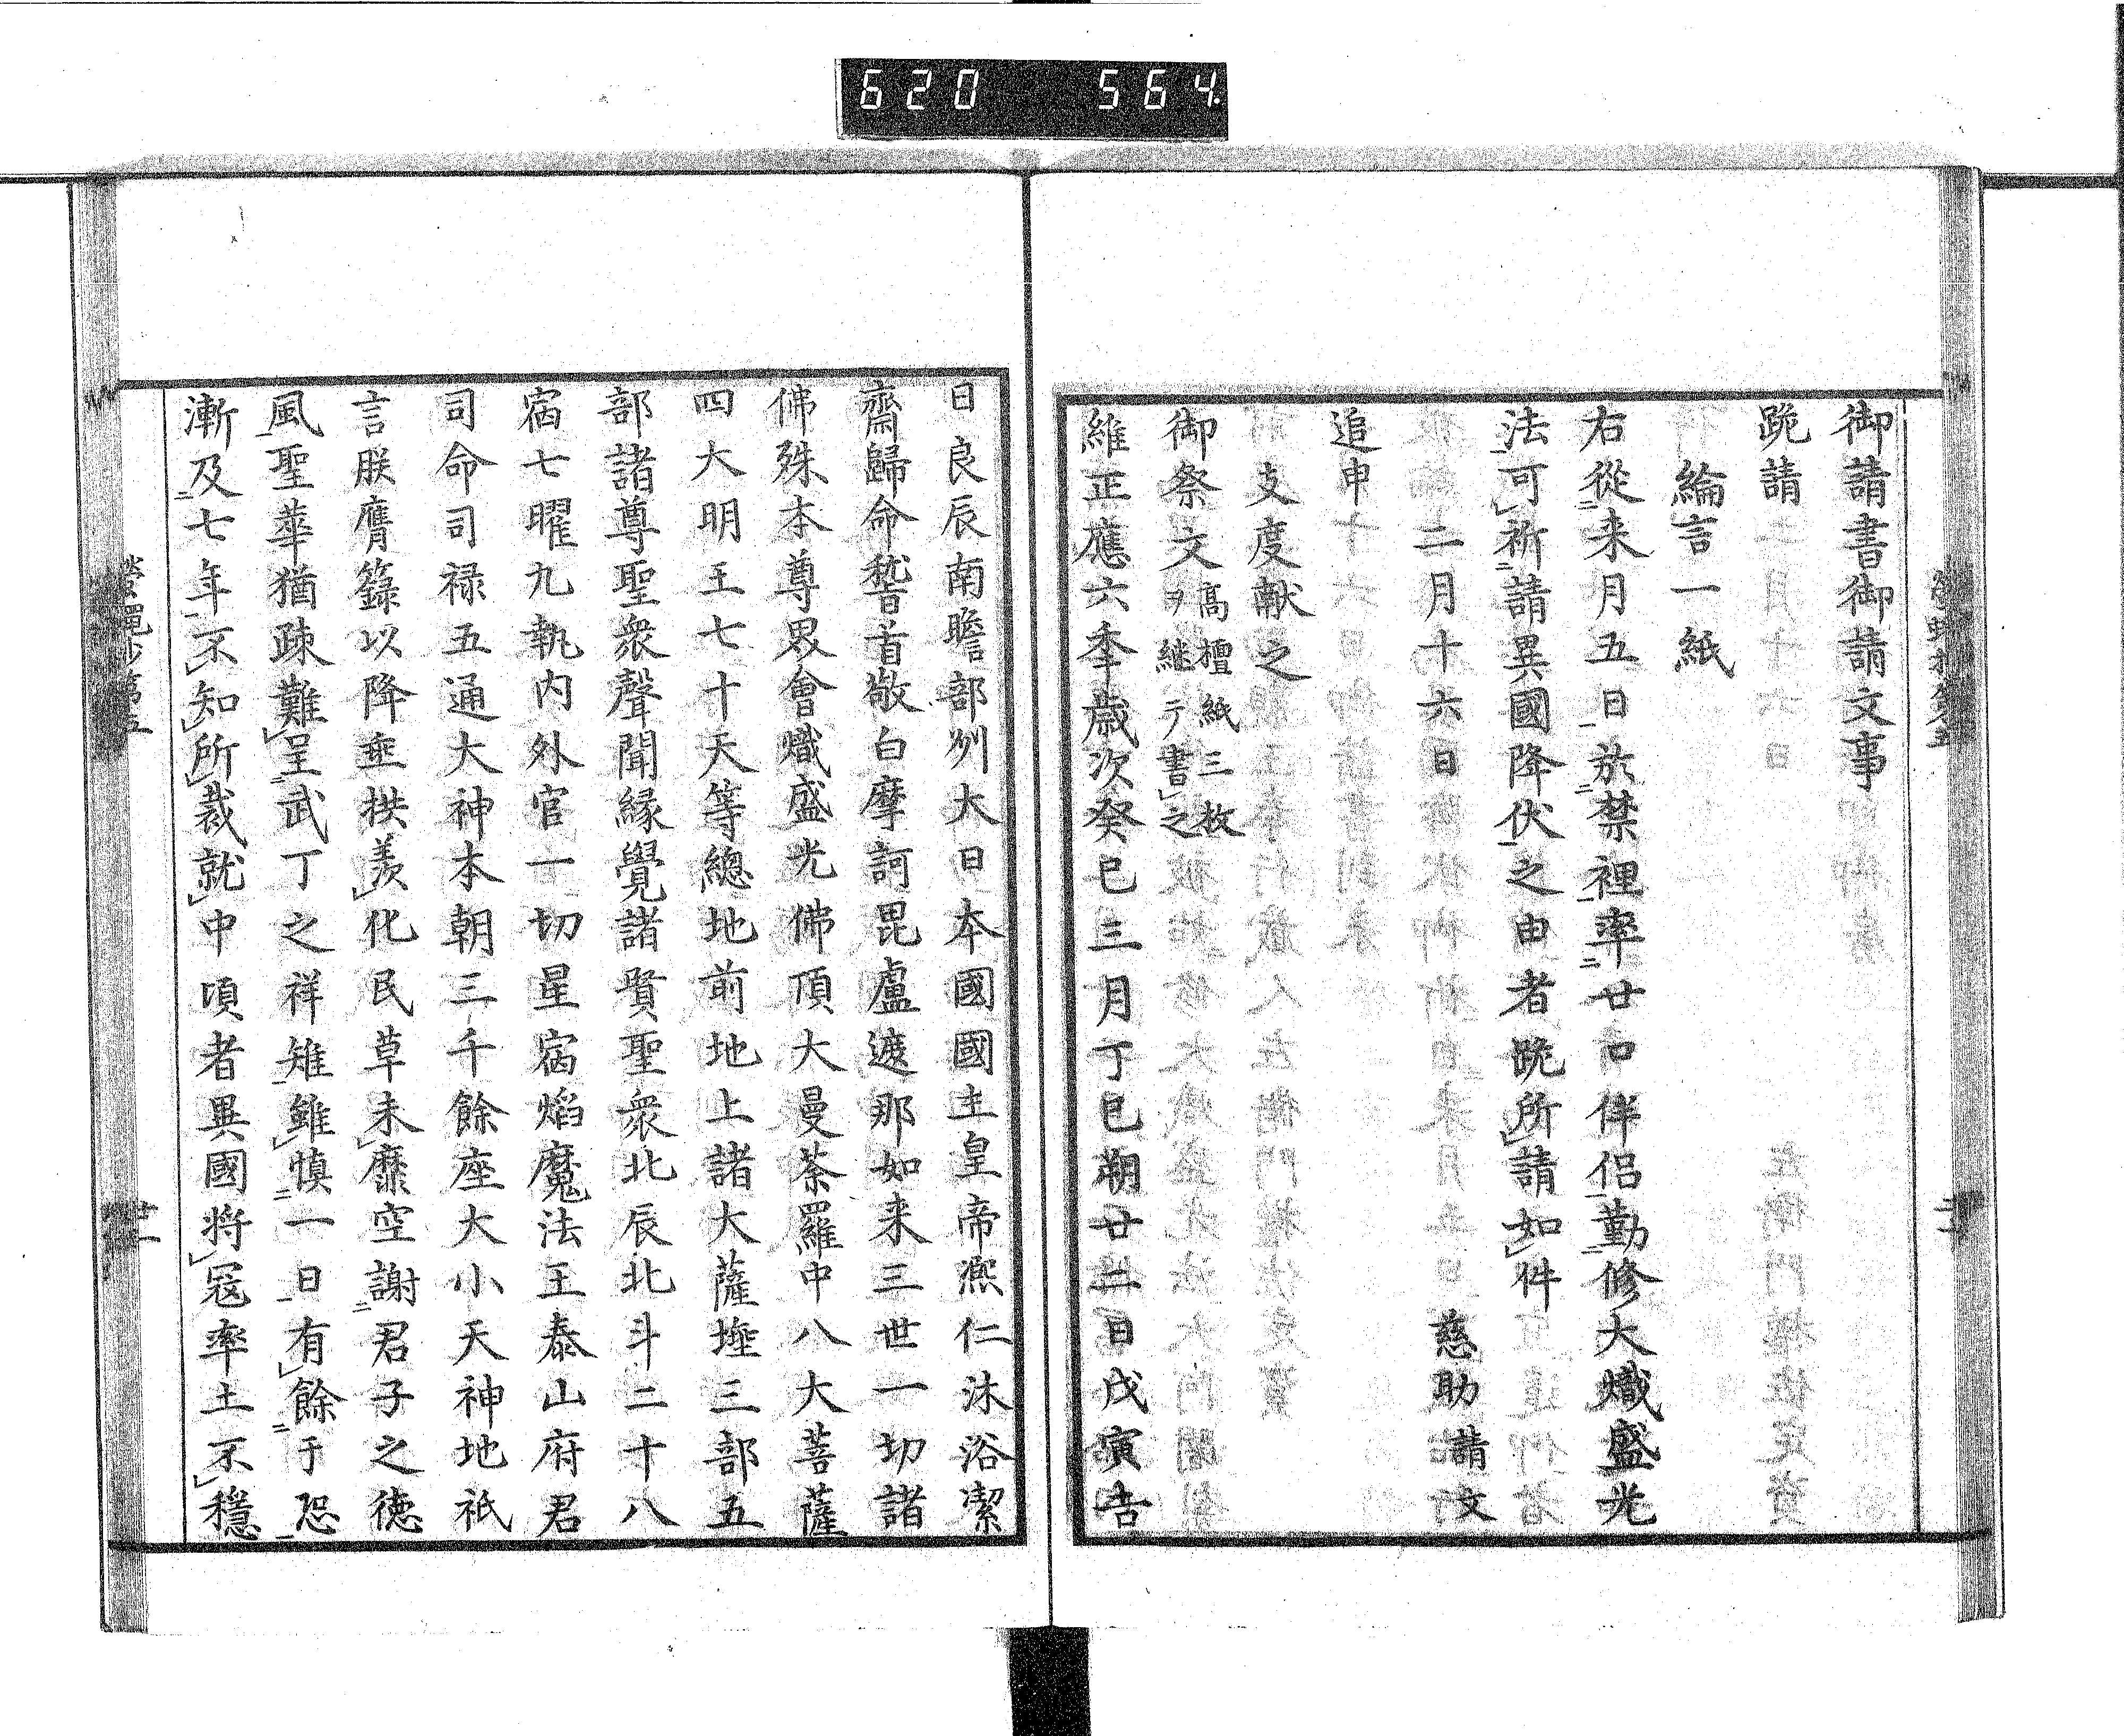 620 564.
御請書御請文事
跪請
綸言一紙
右從来月五日於禁裡率廿口伴侣勤修大熾盛光
法可祈請異國降伏之由者跪所請如件
二月十六日 慈助請文
追申
支度献之
御祭文
高檀紙三枚
ヲ継テ書之
維正應六季歳次癸巳三月丁巳朔廿二日戊寅吉
日良辰南瞻部州大日本國國主皇帝凞仁沐浴潔
齋歸命嵆首敬白摩訶毘盧遮那如来三世一切諸
佛殊本尊界會熾盛光佛頂大曼荼羅中八大菩薩
四大明王七十天等總地前地上諸大薩埵三部五
部諸尊聖衆聲聞縁覺諸賢聖衆北辰北斗二十八
宿七曜九執内外官一切星宿焰魔法王泰山府君
司命司禄五通大神本朝三千餘座大小天神地祇
言朕膺籙以降垂拱羡化民草未靡空謝君子之徳
風聖華猶疎難呈武丁之祥雉雖慎一日有餘于恐
漸及七年不知所裁就中項者異國将寇率土不穏
第五